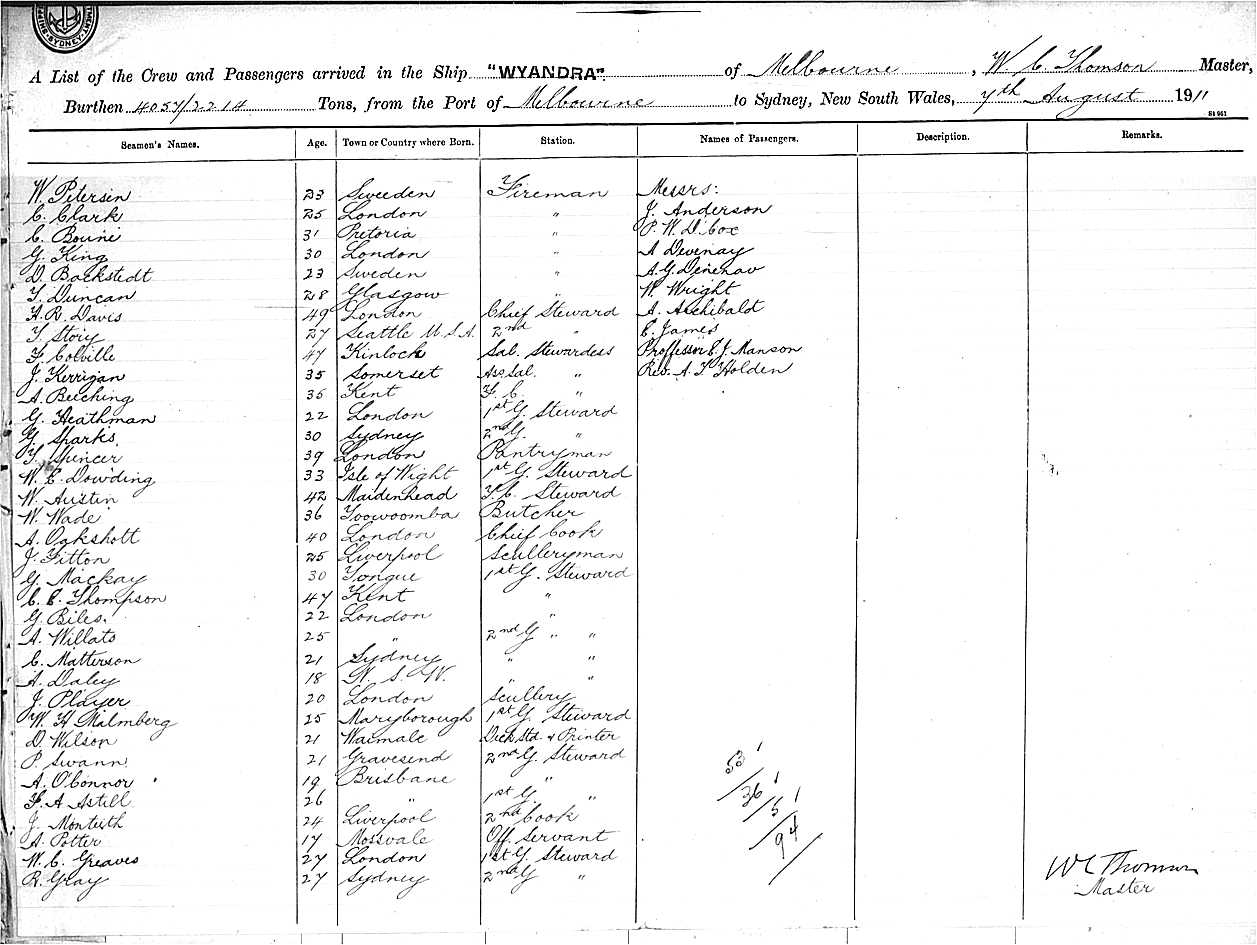 SYDNEY
A List of the Crew and Passengers arrived in the Ship "WYANDRA" of Melbourne, W C. Thomson Master,
Burthen 4057/2214 Tons, from the Port of Melbourne to Sydney, New South Wales, 7th August 1911
St 961
Seamen's Names. Age. Town or Country where Born. Station. Names of Passengers. Description. Remarks.
Messrs:
W. Petersin 23 Sweeden Fireman
C. Clark 25 London " J. Anderson
C. Bourne 31 Pretoria " P. W. D. Cox
G. King 30 London " A Devenay
D. Backstedt 23 Sweden " A. G.
T. Duncan 28 Glasgow " W. Wright
H. R. Davis 49 London Chief Steward A. Archibald
T. Story 27 Seattle U.S.A. 2nd " E. James
F. Colville 47 Kinlock Sal. Stewardess Proffessor E. J. Manson
J. Kerrigan 35 Somerset Ass Sal. " Rev. A. T Holden
A. Beeching 35 Kent F. C. "
G. Heathman 22 London 1st G. Steward
G. Sparks. 30 Sydney 2nd G. "
T. Spencer 39 London Pantryman
W. E. Dowding 33 Isle of Wight 1st G. Steward
W. Austin 42 Maidenhead F. C. Steward
W. Wade 36 Toowoomba Butcher
A. Oakshott 40 London Chief Cook
J. Fitton 25 Liverpool Sculleryman
G. Mackay 30 Tongue 1st G. Steward
C. E. Thompson 47 Kent "
G. Biles. 22 London "
A. Willats 25 " 2nd G " "
C. Matterson 21 Sydney " "
A. Daley 18 N. S. W. " "
J. Player 20 London Scullery
W. H Malmberg 25 Maryborough 1st G. Steward
D. Wilson 21 Waimate Deck Std & Printer
P. Swann 21 Gravesend 2nd G. Steward
A. O'Connor 19 Brisbane " "
F. A Astill 26 " 1st G. "
J. Monteith 24 Liverpool 2nd Cook
A. Potter 17 Mossvale Off. Servant
W. C. Greaves 27 London 1st G Steward
R. Gray 27 Sydney 2nd G "
53
/36
/5
/94
W C Thomson
Master